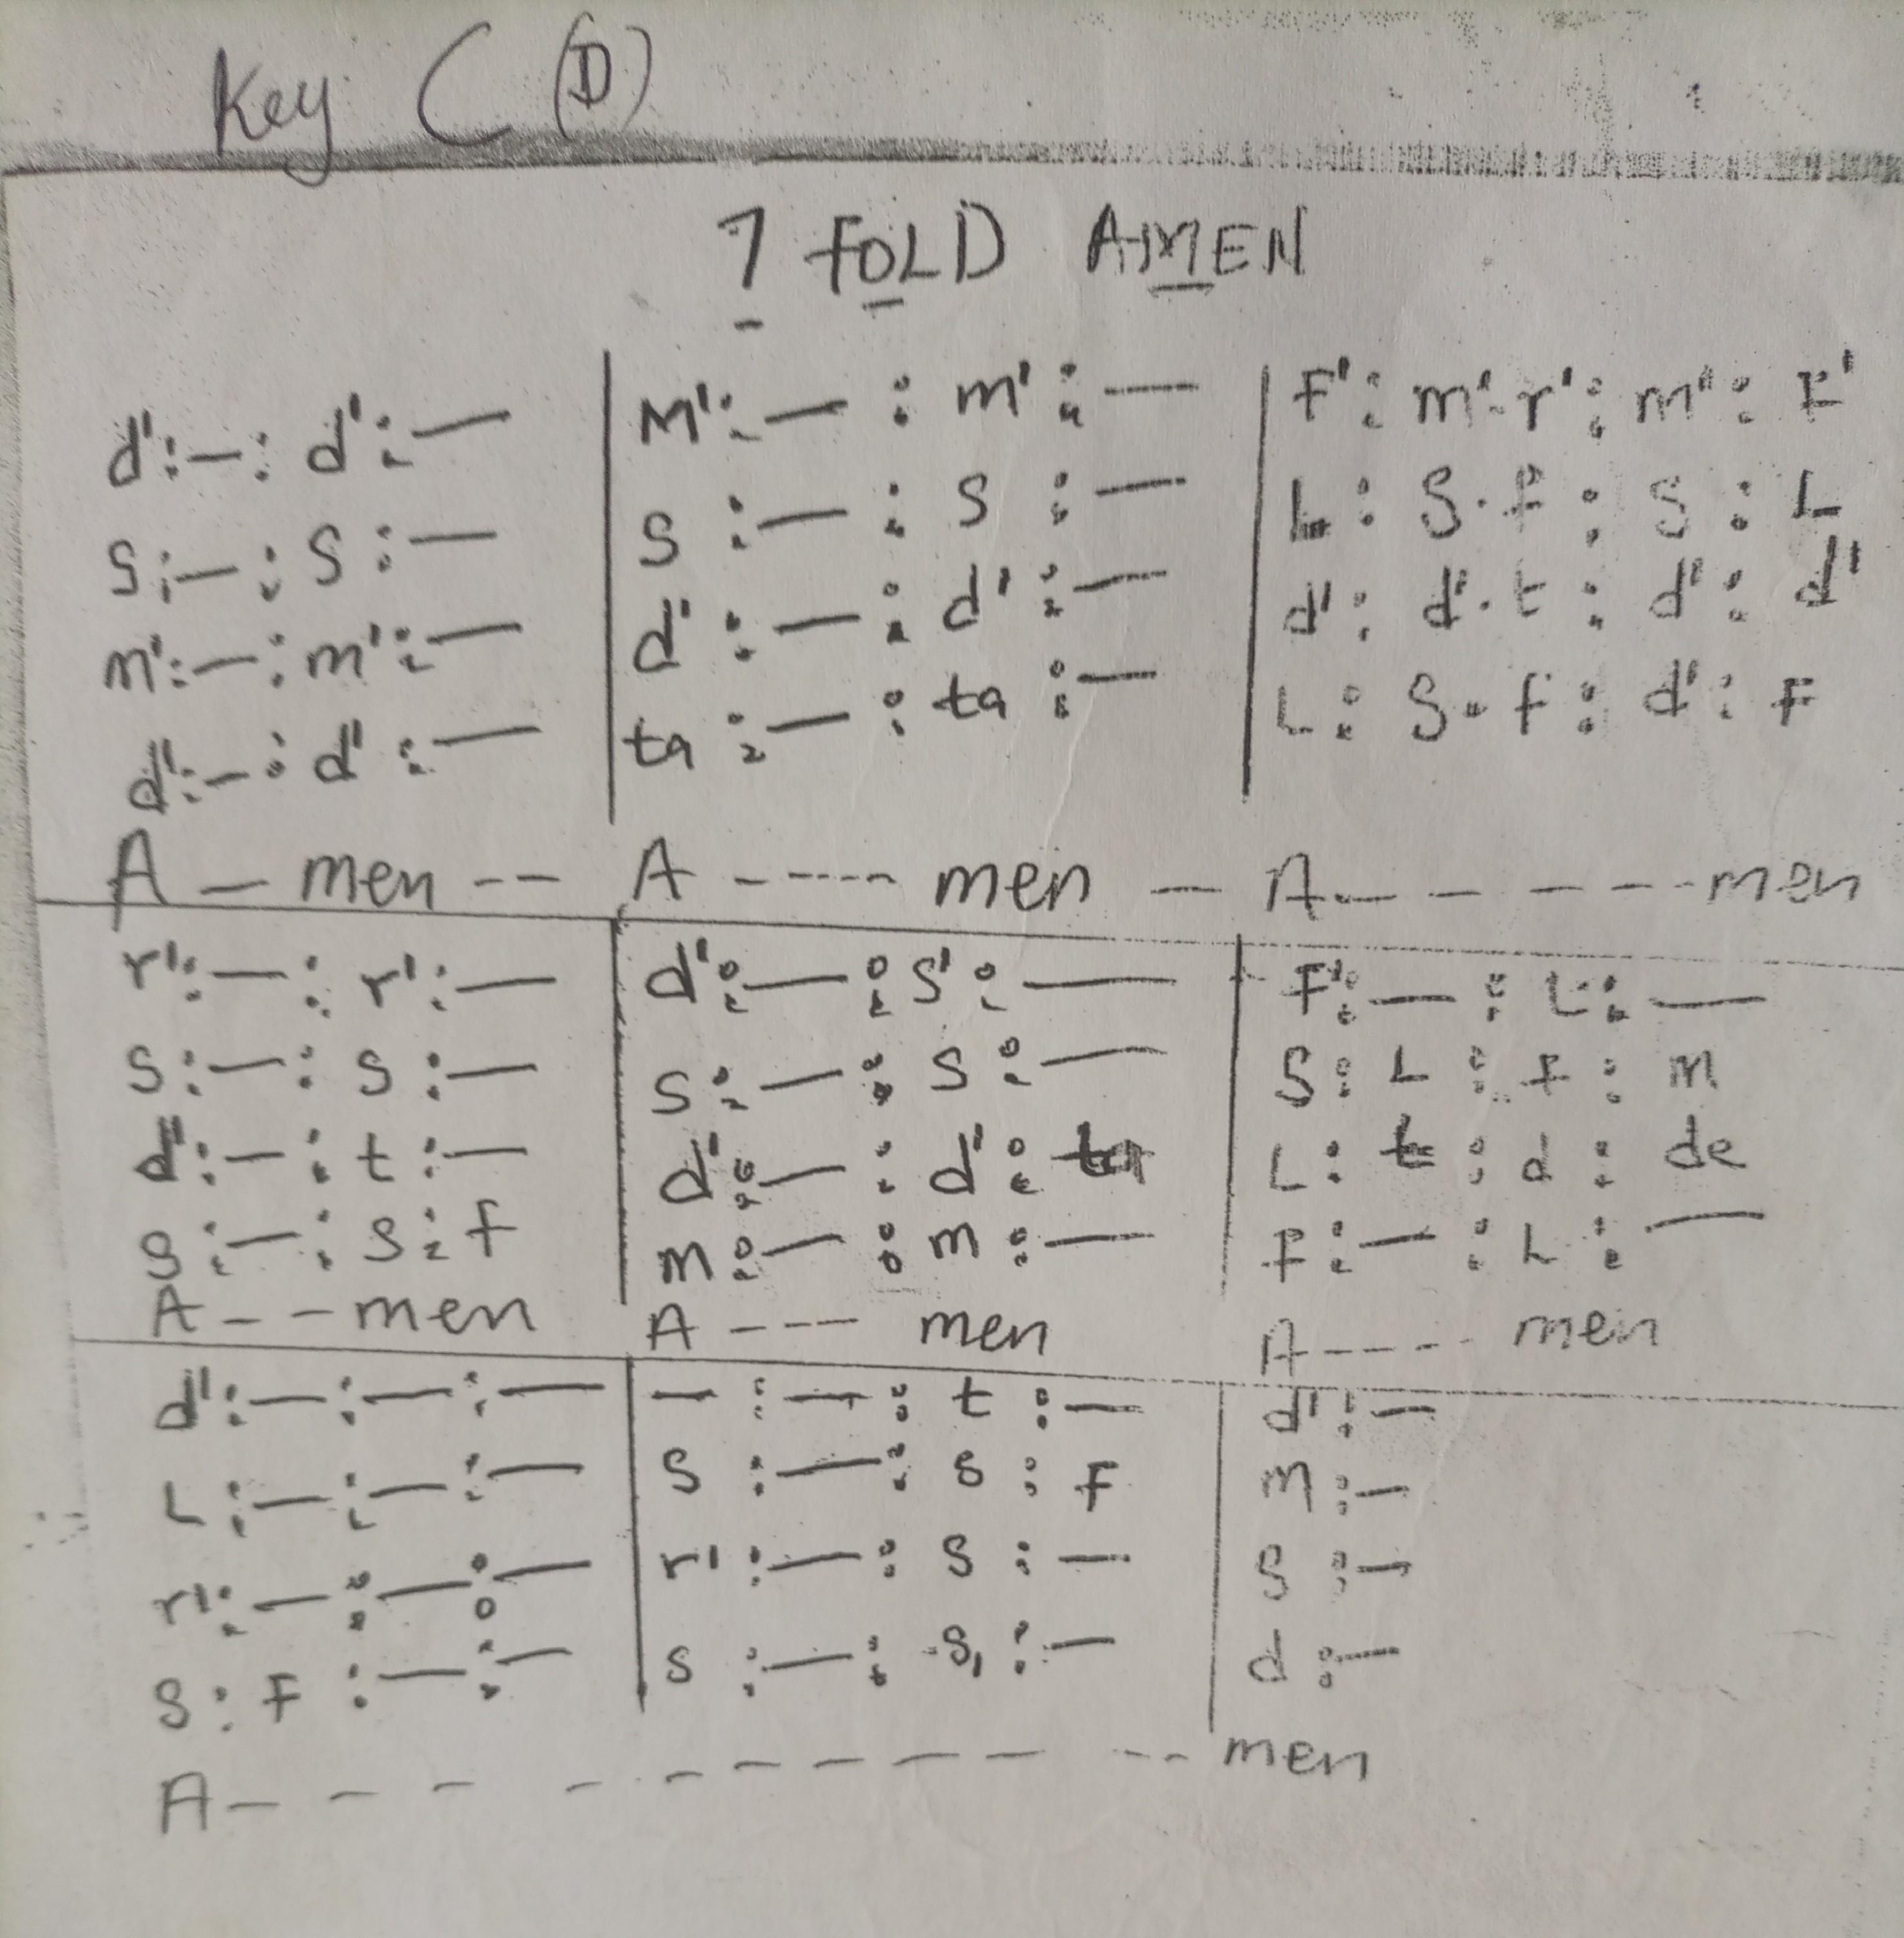 Key C (D)
7 FOLD AMEN
d':—: d':— | M':— : m':— | F': m'.r': m': F'
S:—: S:— | S :— : S :— | L: S.f : S : L
m':—: m':— | d' :— : d' :— | d': d'.t : d': d'
d':—: d' :— | ta :— : ta :— | L: S.f : d': F
A — men -- A ----- men — A.— — — ---men
r':—: r':— | d':—: S':— | F':— : L:—
S:—: S:— | S:—: S:— | S: L : f : m
d':—: t:— | d':— : d': ta | L: t : d : de
S:—: S: f | m:— : m:— | f:— : L :—
A - - - men A ---- men A ----- men
d':—:—:— | — :— : t :— | d':—
L:—:—:— | S :—: s : F | M:—
r':—:—:— | r':—: S :— | S :—
S: F :—:— | s :—: s, :— | d :—
A— - - - - - - - - -- men